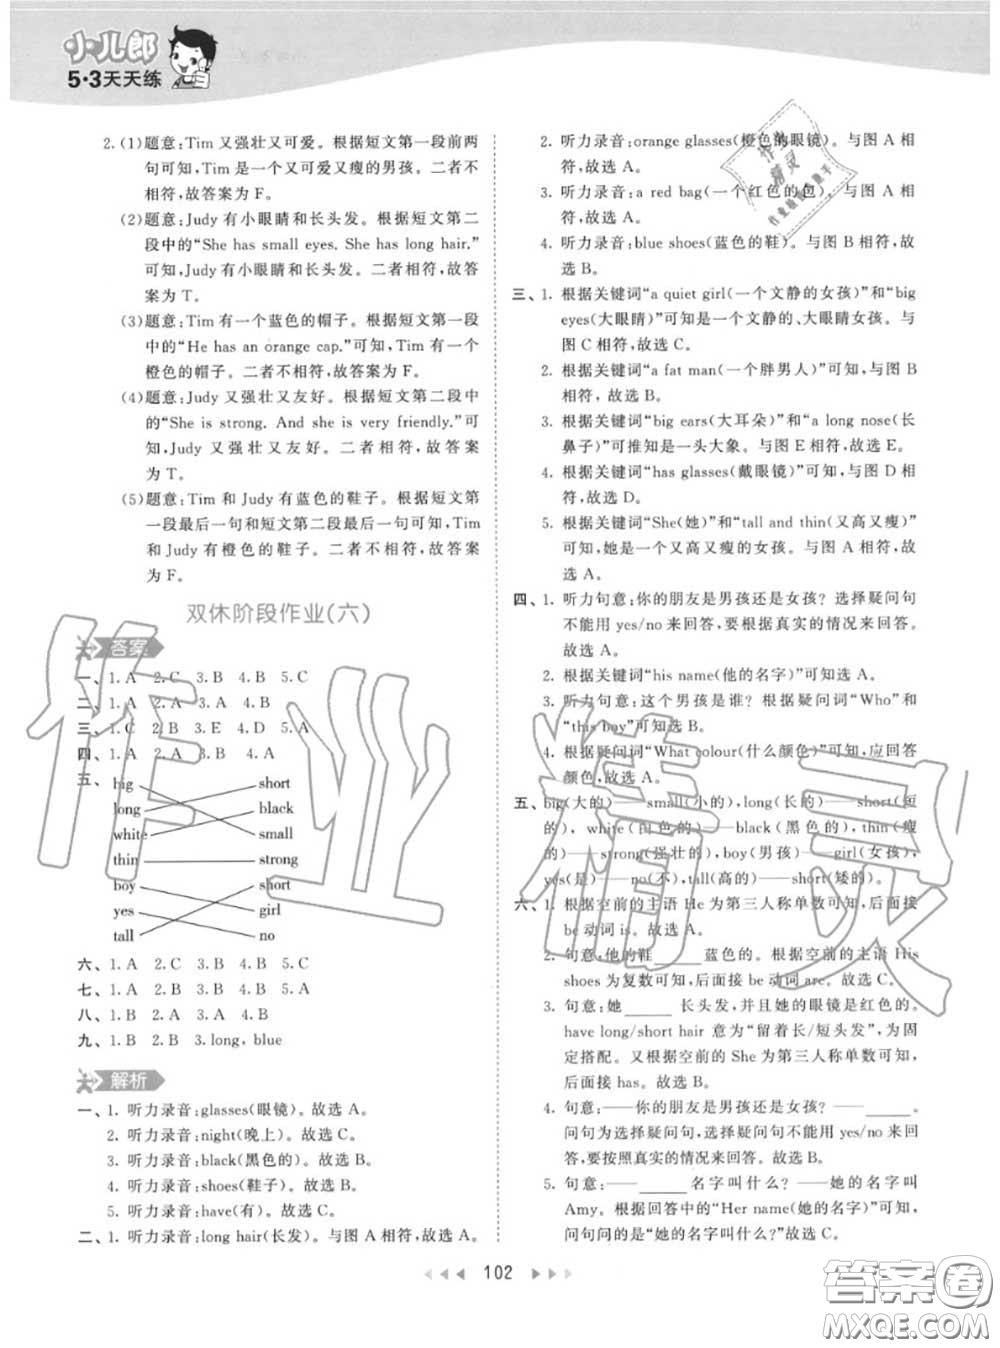 小儿郎
5·3天天练
2.(1)题意:Tim 又强壮又可爱。根据短文第一段前两
句可知,Tim 是一个又可爱又瘦的男孩。二者不
相符,故答案为 F。
(2)题意:Judy 有小眼睛和长头发。根据短文第二
段中的“She has small eyes. She has long hair.”
可知,Judy 有小眼睛和长头发。二者相符,故答
案为 T。
(3)题意:Tim 有一个蓝色的帽子。根据短文第一段
中的“He has an orange cap.”可知,Tim 有一个
橙色的帽子。二者不相符,故答案为 F。
(4)题意:Judy 又强壮又友好。根据短文第二段中
的“She is strong. And she is very friendly.”可
知,Judy 又强壮又友好。二者相符,故答案
为 T。
(5)题意:Tim 和 Judy 有蓝色的鞋子。根据短文第
一段最后一句和短文第二段最后一句可知,Tim
和 Judy 有橙色的鞋子。二者不相符,故答案
为 F。
双休阶段作业(六)
答案
一、1. A 2. C 3. B 4. B 5. C
二、1. A 2. A 3. A 4. B
三、1. C 2. B 3. E 4. D 5. A
四、1. A 2. A 3. B 4. A
五、big short
long black
white small
thin strong
boy short
yes girl
tall no
六、1. A 2. C 3. B 4. B 5. C
七、1. A 2. B 3. B 4. B 5. A
八、1. B 2. A 3. A 4. B
九、1. B 2. B 3. long, blue
解析
一、1. 听力录音:glasses(眼镜)。故选 A。
2. 听力录音:night(晚上)。故选 C。
3. 听力录音:black(黑色的)。故选 B。
4. 听力录音:shoes(鞋子)。故选 B。
5. 听力录音:have(有)。故选 C。
二、1. 听力录音:long hair(长发)。与图 A 相符,故选 A。
2. 听力录音:orange glasses(橙色的眼镜)。与图 A 相
符,故选 A。
3. 听力录音:a red bag(一个红色的包)。与图 A 相
符,故选 A。
4. 听力录音:blue shoes(蓝色的鞋)。与图 B 相符,故
选 B。
三、1. 根据关键词“a quiet girl(一个文静的女孩)”和“big
eyes(大眼睛)”可知是一个文静的、大眼睛女孩。与
图 C 相符,故选 C。
2. 根据关键词“a fat man(一个胖男人)”可知,与图 B
相符,故选 B。
3. 根据关键词“big ears(大耳朵)”和“a long nose(长
鼻子)”可推知是一头大象。与图 E 相符,故选 E。
4. 根据关键词“has glasses(戴眼镜)”可知,与图 D 相
符,故选 D。
5. 根据关键词“She(她)”和“tall and thin(又高又瘦)”
可知,她是一个又高又瘦的女孩。与图 A 相符,故
选 A。
四、1. 听力句意:你的朋友是男孩还是女孩? 选择疑问句
不能用 yes/no 来回答,要根据真实的情况来回答。
故选 A。
2. 根据关键词“his name(他的名字)”可知选 A。
3. 听力句意:这个男孩是谁? 根据疑问词“Who”和
“this boy”可知选 B。
4. 根据疑问词“What colour(什么颜色)”可知,应回答
颜色,故选 A。
五、big(大的)——small(小的),long(长的)——short(短
的),white(白色的)——black(黑色的),thin(瘦
的)——strong(强壮的),boy(男孩)——girl(女孩),
yes(是)——no(不),tall(高的)——short(矮的)。
六、1. 根据空前的主语 He 为第三人称单数可知,后面接
be 动词 is。故选 A。
2. 句意:他的鞋______蓝色的。根据空前的主语 His
shoes 为复数可知,后面接 be 动词 are。故选 C。
3. 句意:她______长头发,并且她的眼镜是红色的。
have long/short hair 意为“留着长/短头发”,为固
定搭配。又根据空前的 She 为第三人称单数可知,后面
接 has。故选 B。
4. 句意:——你的朋友是男孩还是女孩? ——______。
问句为选择疑问句,选择疑问句不能用 yes/no 来回
答,要按照真实的情况来回答。故选 B。
5. 句意:——______名字叫什么? ——她的名字叫
Amy。根据回答中的“Her name(她的名字)”可知,
问句问的是“她的名字叫什么?”故选 C。
102
作业精灵
答案圈
MXQE.COM